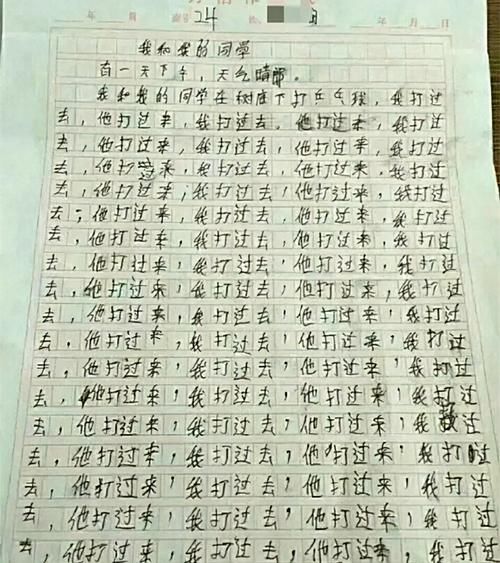 年 月 24 年 月 日
我和我的同学
有一天下午，天气晴朗。
我和我的同学在树底下打乒乓球，我打过
去，他打过来，我打过去，他打过来，我打过
去，他打过来，我打过去，他打过来，我打过
去，他打过来，我打过去，他打过来，我打过
去，他打过来，我打过去，他打过来，我打过
去，他打过来，我打过去，他打过来，我打过
去，他打过来，我打过去，他打过来，我打过
去，他打过来，我打过去，他打过来，我打过
去，他打过来，我打过去，他打过来，我打过
去，他打过来，我打过去，他打过来，我打过
去，他打过来，我打过去，他打过来，我打过
去，他打过来，我打过去，他打过来，我打过
去，他打过来，我打过去，他打过来，我打过
去，他打过来，我打过去，他打过来，我
去，他打过来，我打过去，他打过来，我打过
去，他打过来，我打过去，他打过来，我打过
去，他打过来，我打过去，他打过来，我打过
去，他打过来，我打过去，他打过来，我打过